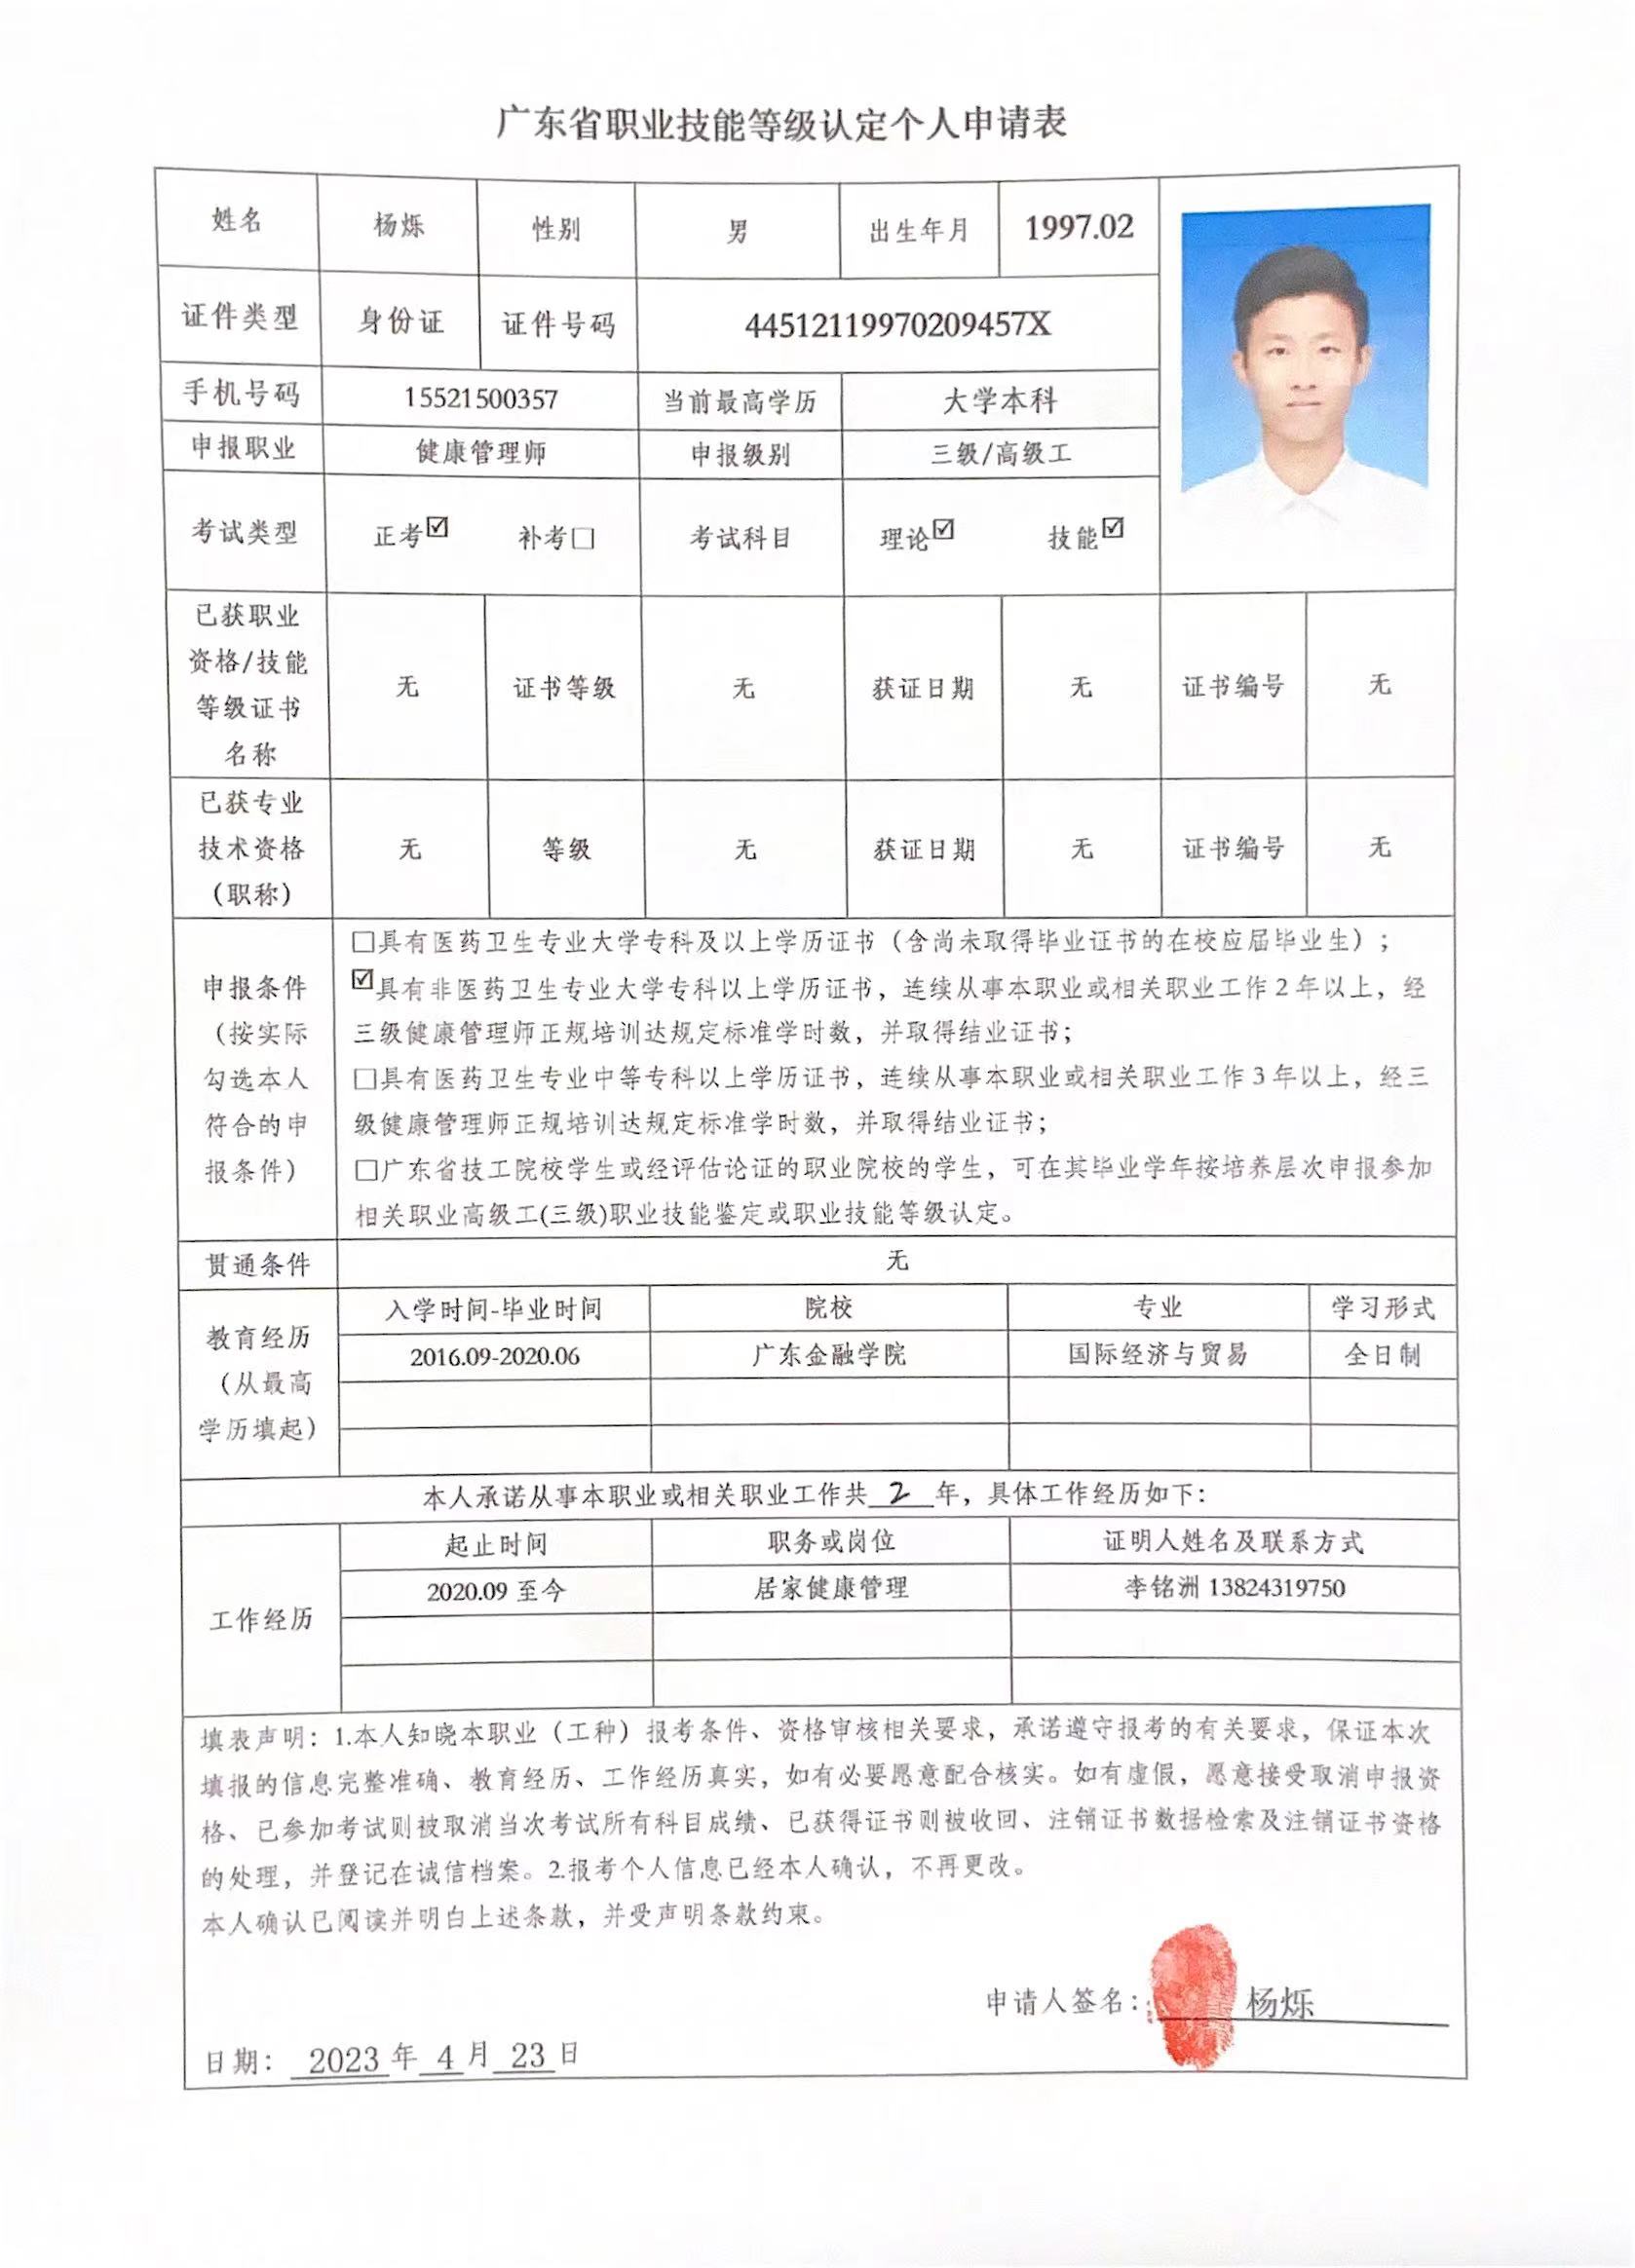 广东省职业技能等级认定个人申请表
姓名 杨烁 性别 男 出生年月 1997.02
证件类型 身份证 证件号码 44512119970209457X
手机号码 15521500357 当前最高学历 大学本科
申报职业 健康管理师 申报级别 三级/高级工
考试类型 正考☑ 补考□ 考试科目 理论☑ 技能☑
已获职业
资格/技能
等级证书
名称
无 证书等级 无 获证日期 无 证书编号 无
已获专业
技术资格
（职称）
无 等级 无 获证日期 无 证书编号 无
申报条件
（按实际
勾选本人
符合的申
报条件）
□具有医药卫生专业大学专科及以上学历证书（含尚未取得毕业证书的在校应届毕业生）；
☑具有非医药卫生专业大学专科以上学历证书，连续从事本职业或相关职业工作2年以上，经
三级健康管理师正规培训达规定标准学时数，并取得结业证书；
□具有医药卫生专业中等专科以上学历证书，连续从事本职业或相关职业工作3年以上，经三
级健康管理师正规培训达规定标准学时数，并取得结业证书；
□广东省技工院校学生或经评估论证的职业院校的学生，可在其毕业学年按培养层次申报参加
相关职业高级工(三级)职业技能鉴定或职业技能等级认定。
贯通条件 无
教育经历
（从最高
学历填起）
入学时间-毕业时间 院校 专业 学习形式
2016.09-2020.06 广东金融学院 国际经济与贸易 全日制
本人承诺从事本职业或相关职业工作共 2 年，具体工作经历如下：
工作经历
起止时间 职务或岗位 证明人姓名及联系方式
2020.09 至今 居家健康管理 李铭洲 13824319750
填表声明：1.本人知晓本职业（工种）报考条件、资格审核相关要求，承诺遵守报考的有关要求，保证本次
填报的信息完整准确、教育经历、工作经历真实，如有必要愿意配合核实。如有虚假，愿意接受取消申报资
格、已参加考试则被取消当次考试所有科目成绩、已获得证书则被收回、注销证书数据检索及注销证书资格
的处理，并登记在诚信档案。2.报考个人信息已经本人确认，不再更改。
本人确认已阅读并明白上述条款，并受声明条款约束。
申请人签名： 杨烁
日期： 2023 年 4 月 23 日